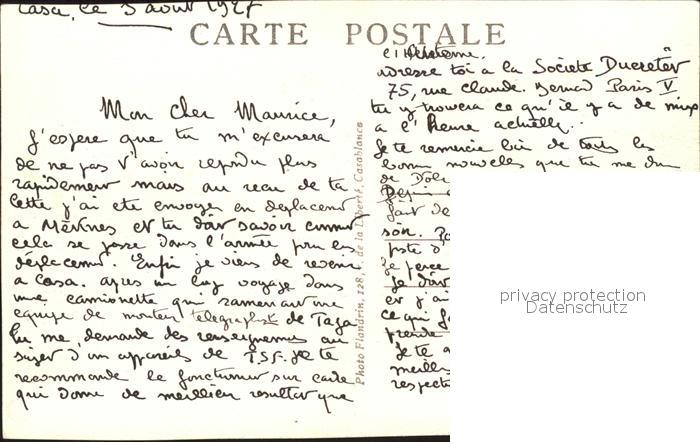 Casa, le 3 août 1927
CARTE POSTALE
Mon cher Maurice,
J'espère que tu m'excusera
de ne pas t'avoir repondu plus
rapidement mais au recu de ta
lettre j'ai été envoyer en deplacement
a Mèknes et tu dois savoir comment
cela se passe dans l'armée pour les
déplacement. Enfin je viens de revenir
a Casa. apres un long voyage dans
une camionette qui ramenait une
equipe de monteur telegraphiste de Taza
Tu me demande des renseignements au
sujet d'un appareils de T.S.F. Je te
recommande le fonctionner sur cadre
qui donne de meilleur resultat que
l'antenne.
adresse toi a la Société Ducretet
75, rue Claude Bernard Paris V
tu y trouvera ce qu'il y a de mieux
a l'heure actuelle..
Je te remercie bien de tous les
bonne nouvelles que tu me
de
fait de
soir.
Je
Je
et j'ai
ce qui
Je te
meill
respect
Photo Flandrin, 128, de la Liberté, Casablanca
privacy protection
Datenschutz